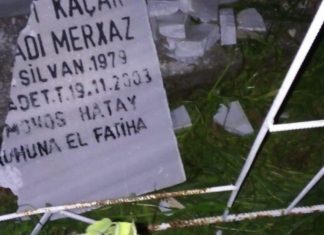 KAÇAR
ADI MERXAZ
SİLVAN.1979
ADET.T.19.11.2003
HATAY
RUHUNA EL FATİHA